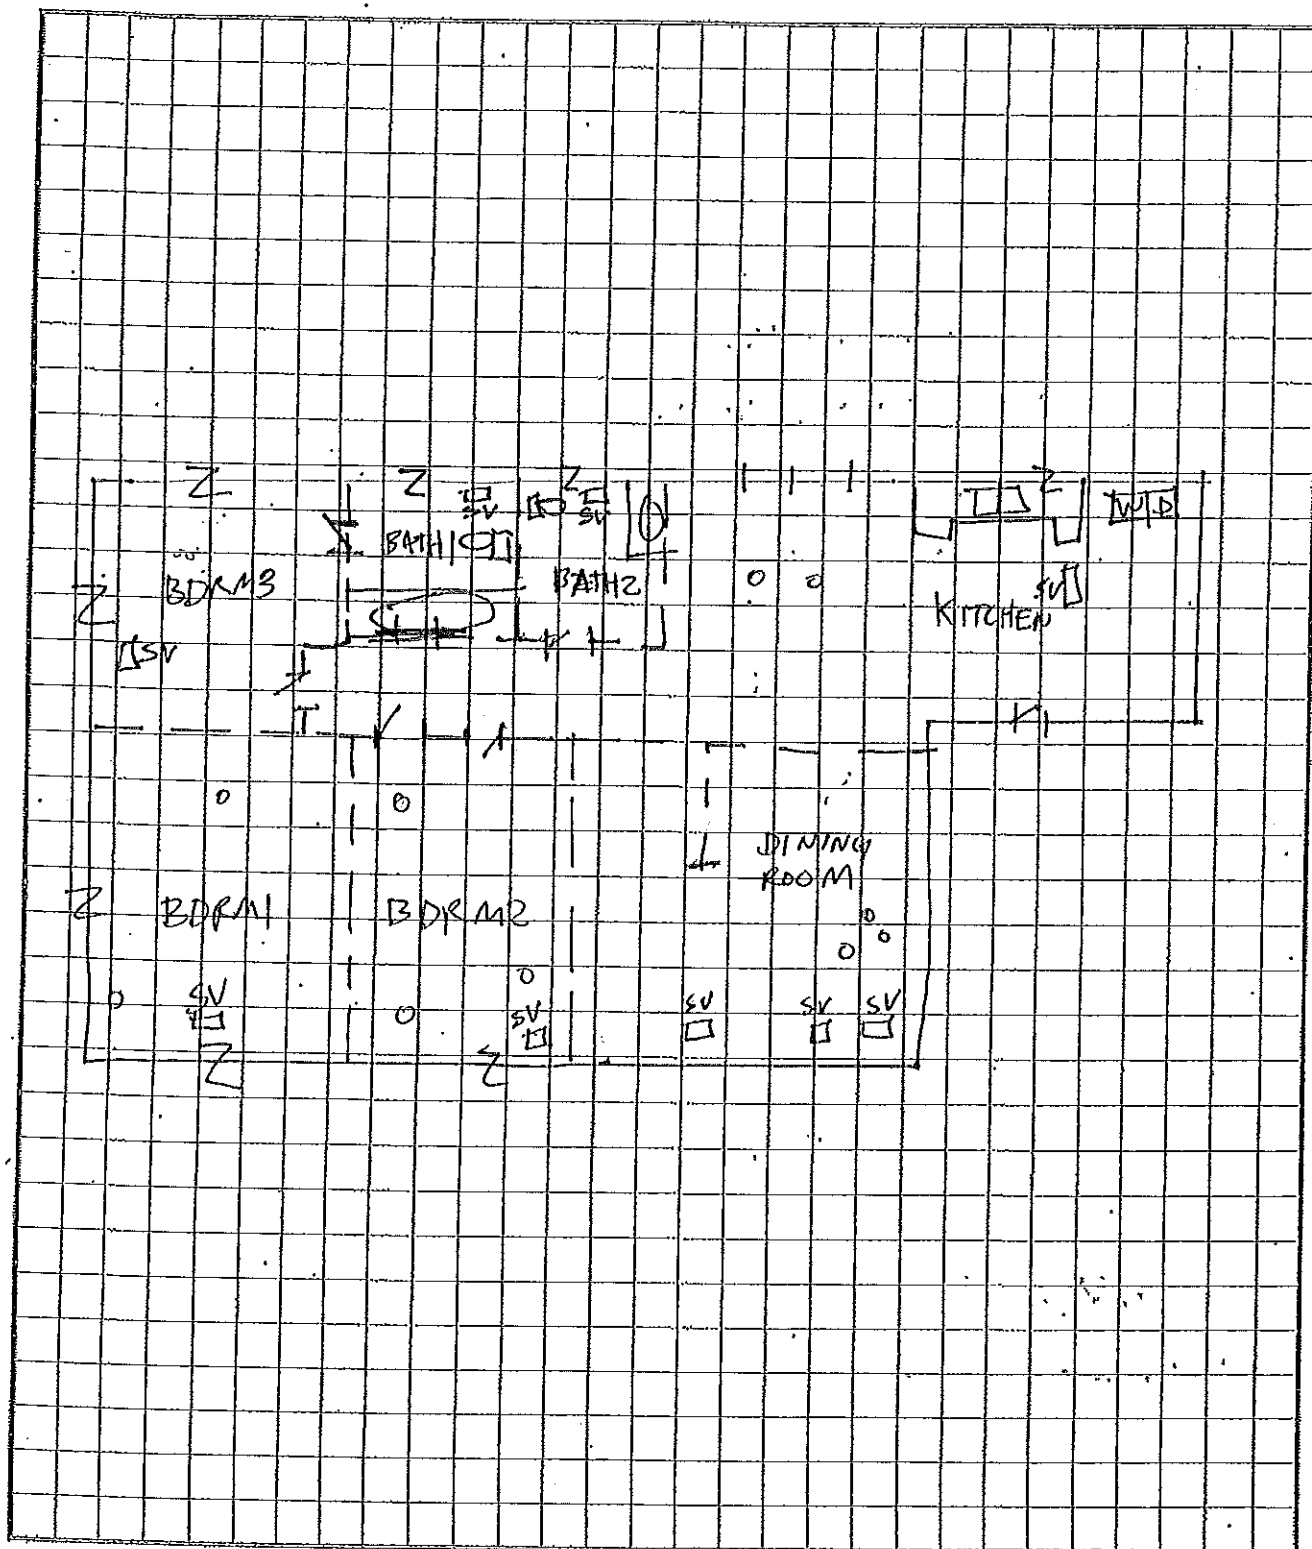 SV
SV
BATH1
W D
BDRM3
BATH2
SV
KITCHEN
SV
DINING
ROOM
BDRM1
BDRM2
SV
SV
SV
SV
SV